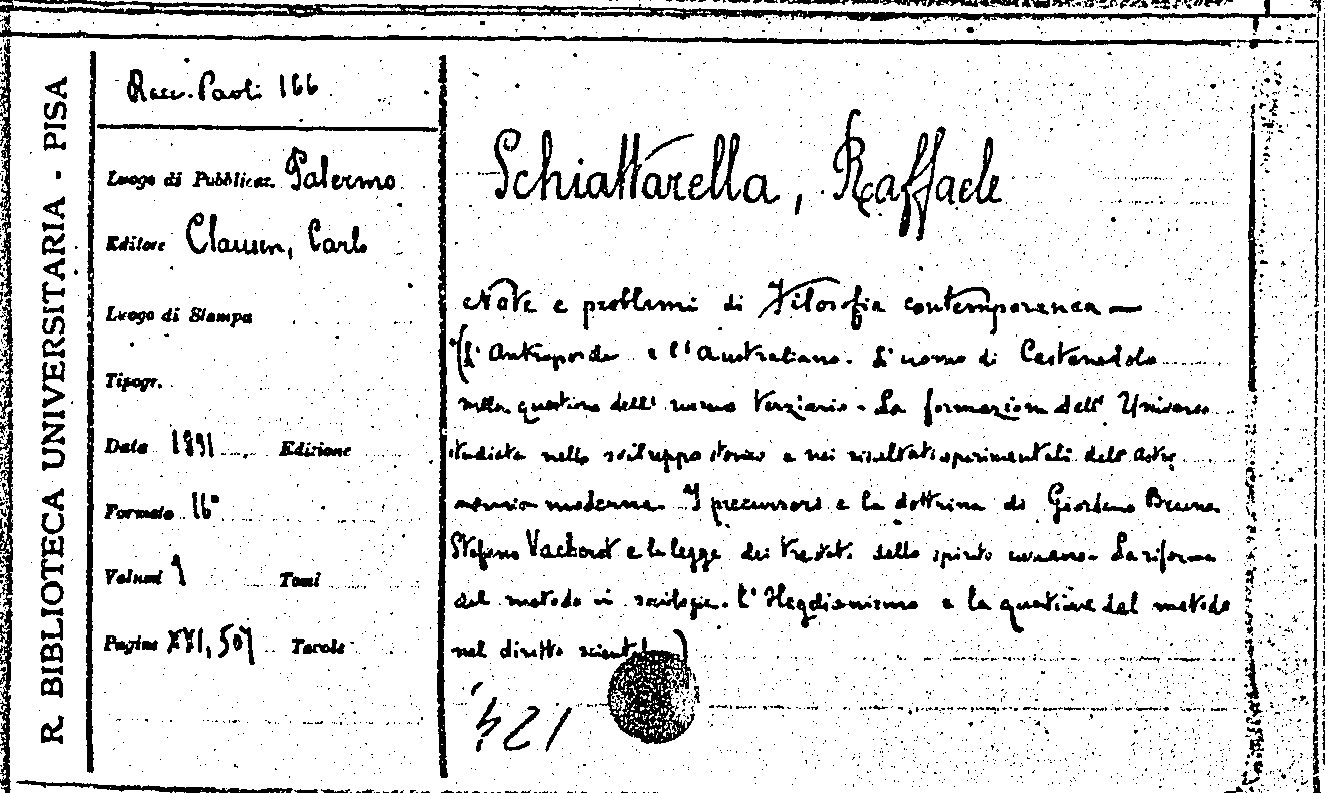 R. BIBLIOTECA UNIVERSITARIA - PISA
Racc. Paoli 166
Luogo di Pubblicaz. Palermo
Editore Clausen, Carlo
Luogo di Stampa
Tipogr.
Data 1891 Edizione
Formato 16°
Volumi 1 Tomi
Pagine XXI, 507 Tavole
Schiattarella, Raffaele
Note e problemi di Filosofia contemporanea —
(L' Antropoide e l'Australiano. L'uomo di Castenedolo
nella questione dell' uomo terziario - La formazione dell' Universo
studiata nello sviluppo storico e nei risultati sperimentali dell' astro
nomia moderna. I precursori e la dottrina di Giordano Bruno
Stefano Vacherot e la legge dei tre stati dello spirito umano - La riforma
del metodo in sociologia. L'Hegelianismo e la questione del metodo
nel diritto scient )
421